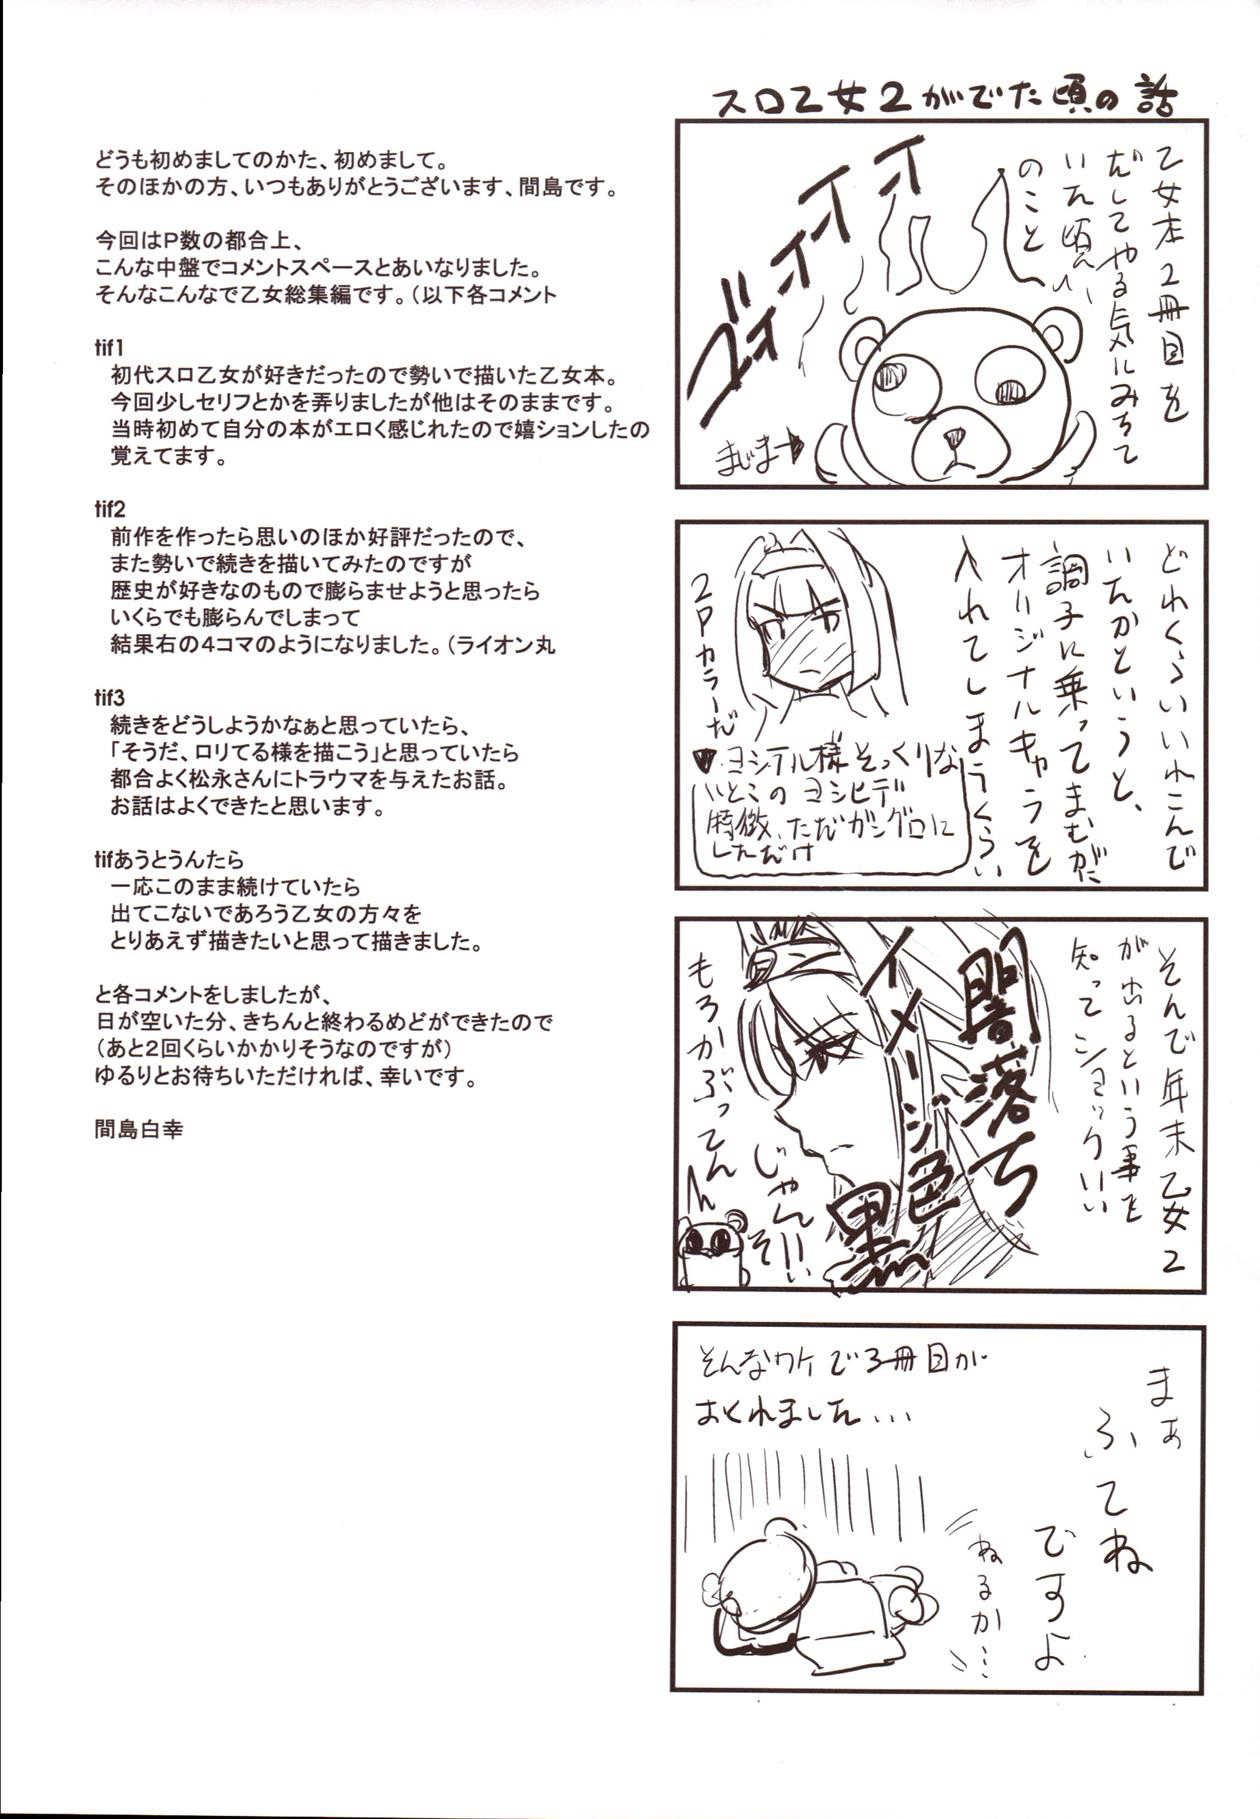 どうも初めましてのかた、初めまして。
そのほかの方、いつもありがとうございます、間島です。
今回はP数の都合上、
こんな中盤でコメントスペースとあいなりました。
そんなこんなで乙女総集編です。（以下各コメント
tif1
初代スロ乙女が好きだったので勢いで描いた乙女本。
今回少しセリフとかを弄りましたが他はそのままです。
当時初めて自分の本がエロく感じれたので嬉ションしたの
覚えてます。
tif2
前作を作ったら思いのほか好評だったので、
また勢いで続きを描いてみたのですが
歴史が好きなのもので膨らませようと思ったら
いくらでも膨らんでしまって
結果右の４コマのようになりました。（ライオン丸
tif3
続きをどうしようかなぁと思っていたら、
「そうだ、ロリてる様を描こう」と思っていたら
都合よく松永さんにトラウマを与えたお話。
お話はよくできたと思います。
tifあうとうんたら
一応このまま続けていたら
出てこないであろう乙女の方々を
とりあえず描きたいと思って描きました。
と各コメントをしましたが、
日が空いた分、きちんと終わるめどができたので
（あと２回くらいかかりそうなのですが）
ゆるりとお待ちいただければ、幸いです。
間島白幸
スロ乙女２がでた頃の話
乙女本２冊目を
だしてやる気にみちて
いた頃
のこと
ゴオオオオオ
まじま→
どれくらいいれこんで
いたかというと、
調子に乗ってまむがに
オリジナルキャラを
入れてしまうくらい
２Pカラーだ
♥ヨシテル様そっくりな
いとこのヨシヒデ
特徴、ただガングロに
しただけ
そんで年末乙女２
が出るという事を
知ってショックいい
闇落ち
イメージ色
黒
もろかぶってん
じゃん!!
そんなワケで3冊目が
おくれました...
まぁ
ふてね
ですよ
ねるか...